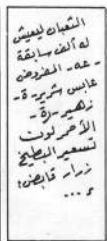 الثعبان ليعيش
له ألف سابقة
- عه - المفروض
عابس شرير - ة -
زهير - رة -
الأحمر لونت
تسعير البطيخ
زرار قابض!
و ...